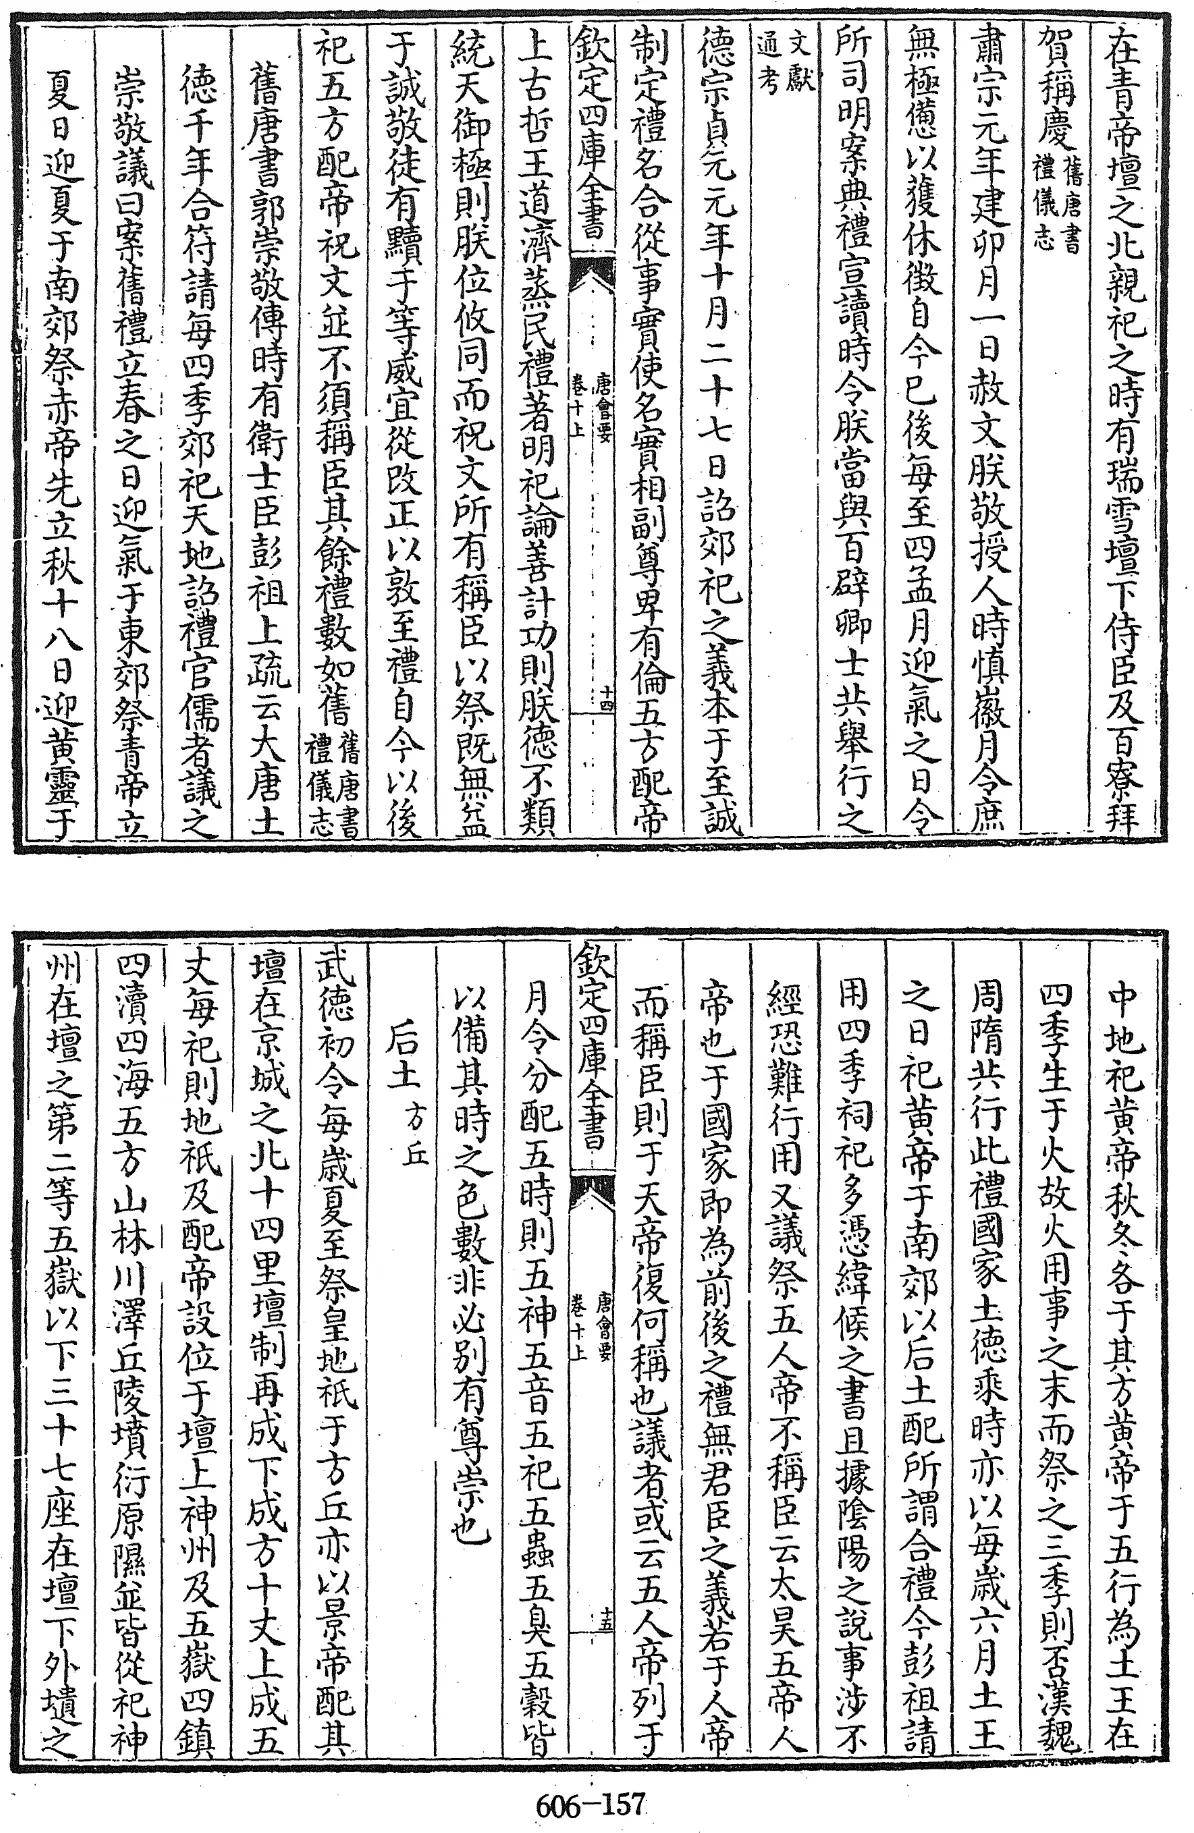 在青帝壇之北親祀之時有瑞雪壇下侍臣及百寮拜
賀稱慶舊唐書禮儀志
肅宗元年建卯月一日赦文朕敬授人時慎徽月令庶
無極憊以獲休徴自今已後每至四孟月迎氣之日令
所司明案典禮宣讀時令朕當與百辟卿士共舉行之
文獻通考
德宗貞元元年十月二十七日詔郊祀之義本于至誠
制定禮名合從事實使名實相副尊卑有倫五方配帝
欽定四庫全書 唐會要 卷十上 十四
上古哲王道濟蒸民禮著明祀論善計功則朕徳不類
統天御極則朕位攸同而祝文所有稱臣以祭既無益
于誠敬徒有黷于等威宜從改正以敦至禮自今以後
祀五方配帝祝文並不須稱臣其餘禮數如舊舊唐書禮儀志
舊唐書郭崇敬傳時有衛士臣彭祖上疏云大唐土
徳千年合符請每四季郊祀天地詔禮官儒者議之
崇敬議曰案舊禮立春之日迎氣于東郊祭青帝立
夏日迎夏于南郊祭赤帝先立秋十八日迎黄靈于
中地祀黄帝秋冬各于其方黄帝于五行為土王在
四季生于火故火用事之末而祭之三季則否漢魏
周隋共行此禮國家土徳乘時亦以每歲六月土王
之日祀黄帝于南郊以后土配所謂合禮今彭祖請
用四季祠祀多憑緯候之書且據陰陽之說事渉不
經恐難行用又議祭五人帝不稱臣云太昊五帝人
帝也于國家即為前後之禮無君臣之義若于人帝
而稱臣則于天帝復何稱也議者或云五人帝列于
欽定四庫全書 唐會要 卷十上 十五
月令分配五時則五神五音五祀五蟲五臭五穀皆
以備其時之色數非必别有尊崇也
后土 方丘
武徳初令每歲夏至祭皇地祇于方丘亦以景帝配其
壇在京城之北十四里壇制再成下成方十丈上成五
丈每祀則地祇及配帝設位于壇上神州及五嶽四鎮
四瀆四海五方山林川澤丘陵墳衍原隰並皆從祀神
州在壇之第二等五嶽以下三十七座在壇下外壝之
606-157